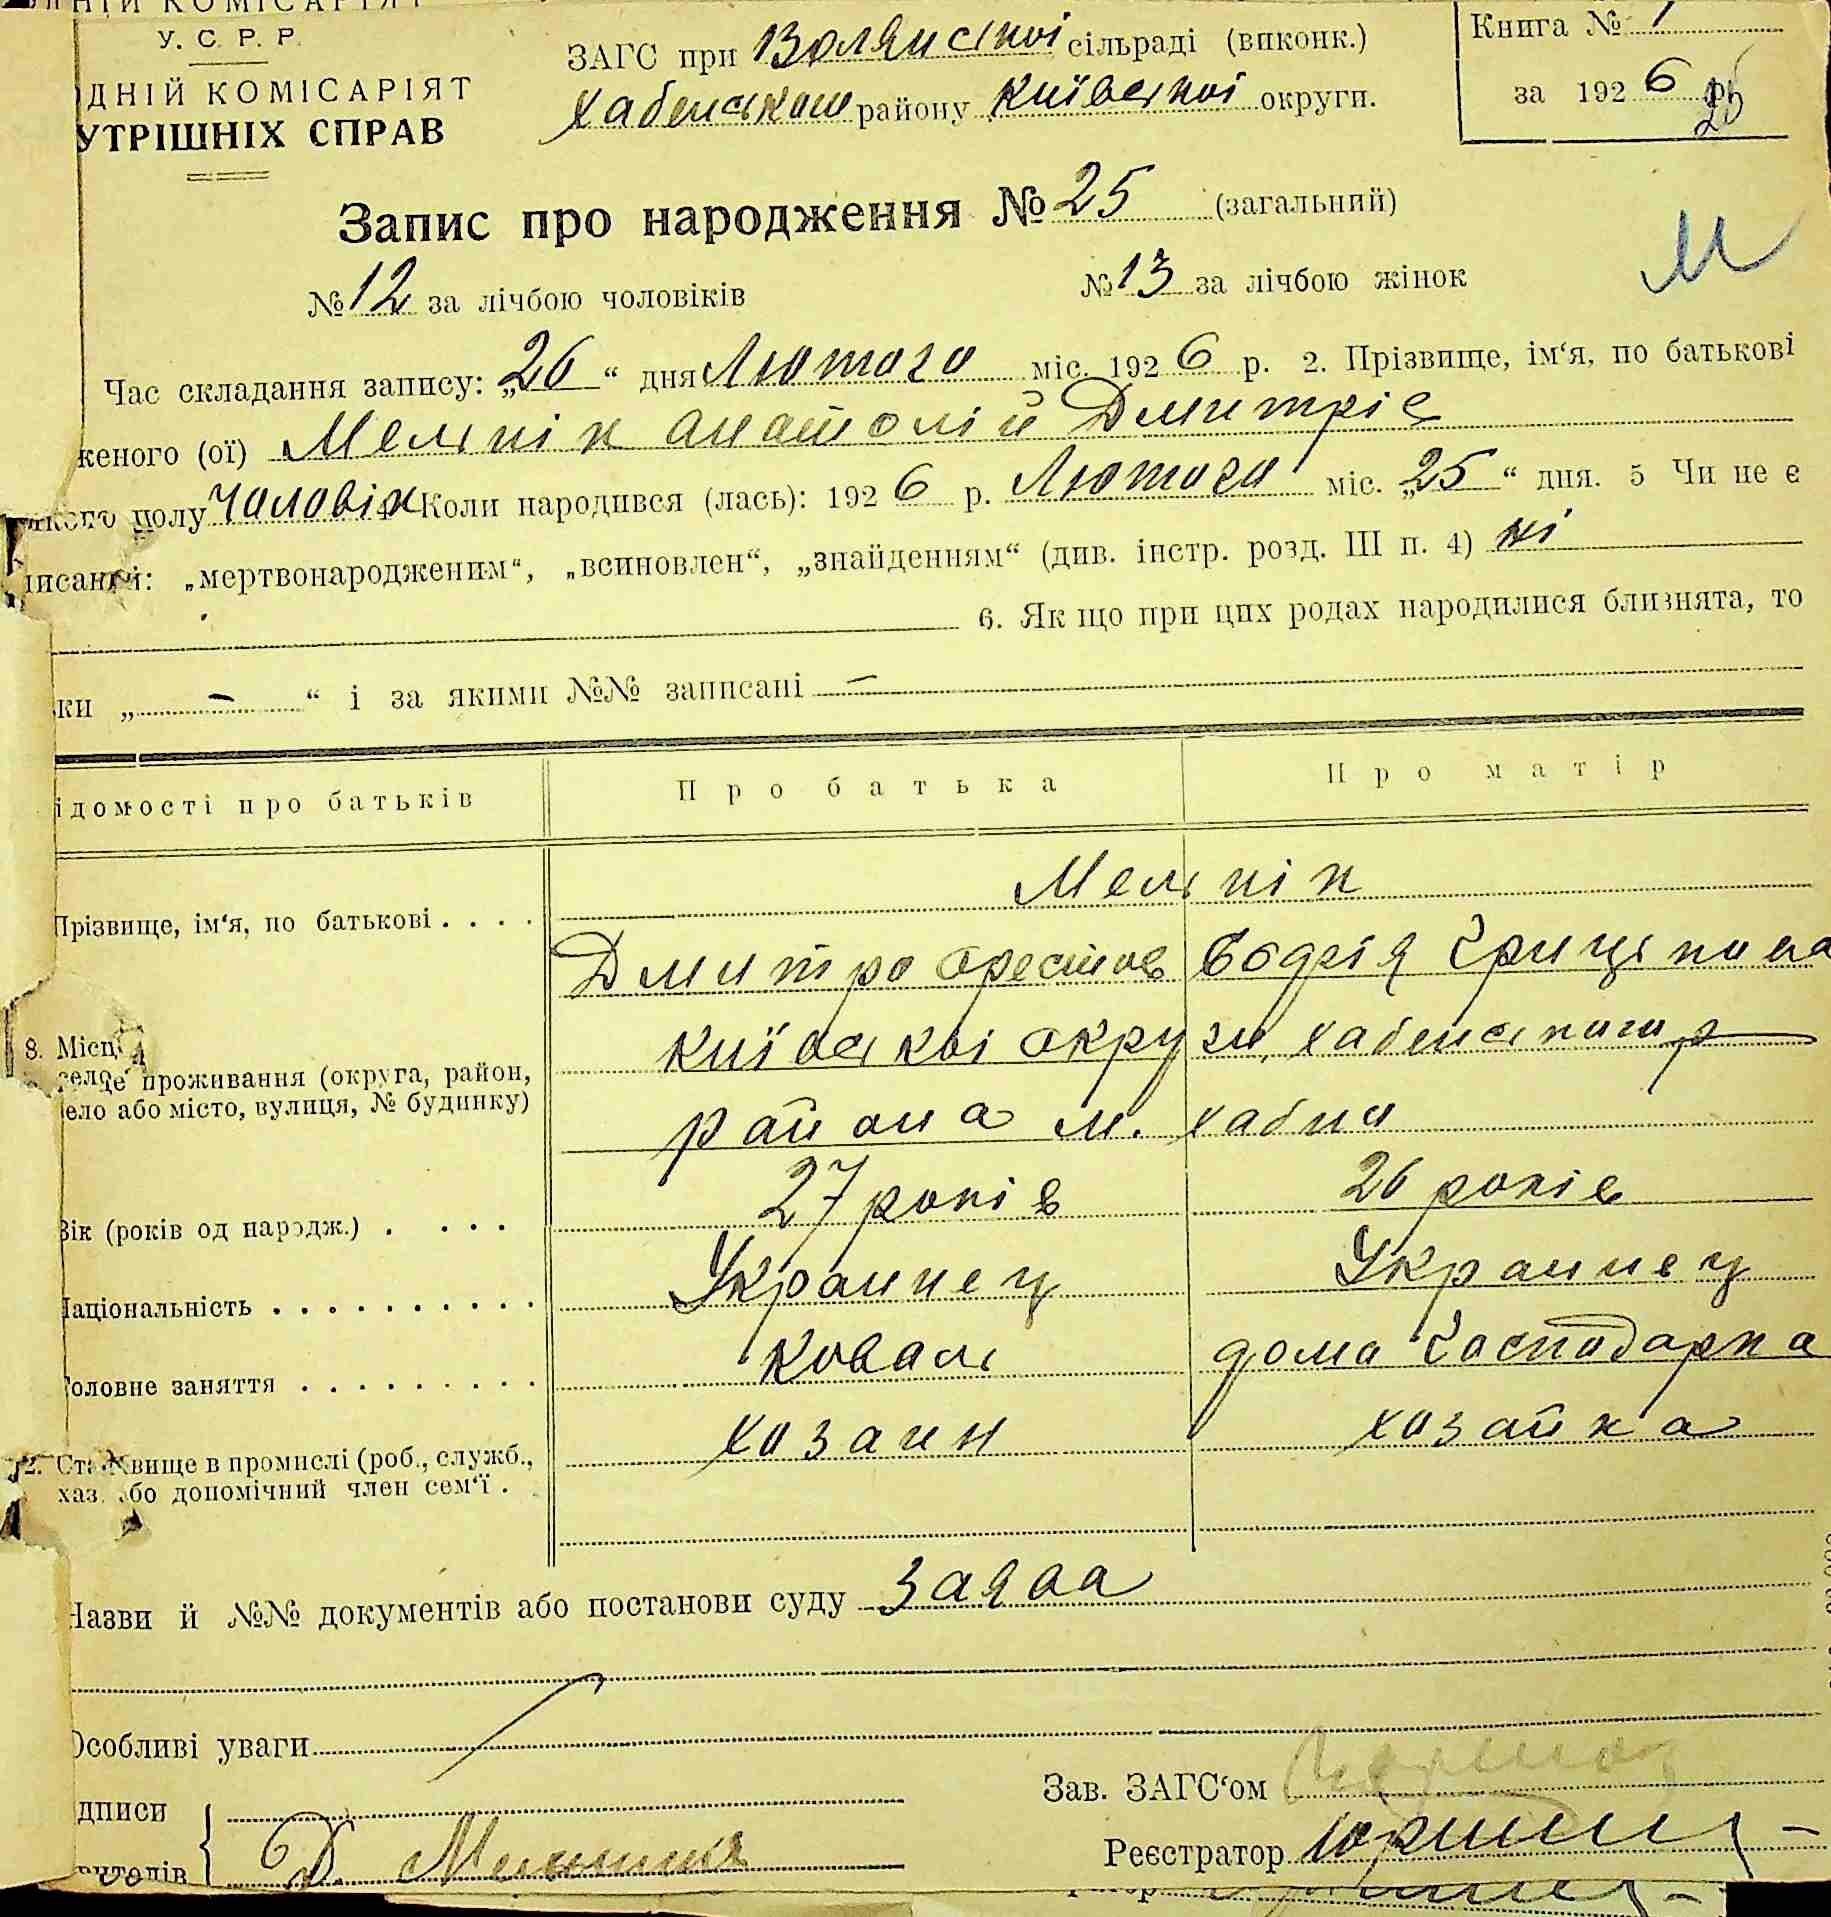 У. С. Р. Р.
ДНІЙ КОМІСАРІЯТ
УТРІШНІХ СПРАВ
ЗАГС при Волянскоі сільраді (виконк.)
Хабенського району Київськоі округи.
Книга № 1
за 1926 р.
25
Запис про народження № 25 (загальний)
№ 12 за лічбою чоловіків № 13 за лічбою жінок
М
Час складання запису: „26“ дня Лютого міс. 1926 р. 2. Прізвище, ім‘я, по батькові
женого (ої) Мельнік Анатолій Дмитріє
якого полу Чоловік Коли народився (лась): 1926 р. Лютого міс. „25“ дня. 5 Чи не є
писаний: „мертвонародженим“, „всиновлен“, „знайденням“ (див. інстр. розд. III п. 4) ні
6. Як що при цих родах народилися близнята, то
ки „ – “ і за якими №№ записані –
ідомості про батьків Про батька Про матір
Мельнік
Прізвище, ім‘я, по батькові . . . .
Дмитро Орестов
8. Місце проживання (округа, район,
село або місто, вулиця, № будинку)
Київські округи, Хабенського р
район а м. Хабна
Вік (років од народж.) . . . . 27 років 26 років
Національність . . . . . . . . . . Украинец Украинец
Головне заняття . . . . . . . . . Коваль дома Господарка
Становище в промислі (роб., служб.,
хаз. або допомічний член сем‘ї . хозаин хозайка
Назви й №№ документів або постанови суду заява
Особливі уваги
дписи
Зав. ЗАГС‘ом
Д. Мельник
Реєстратор